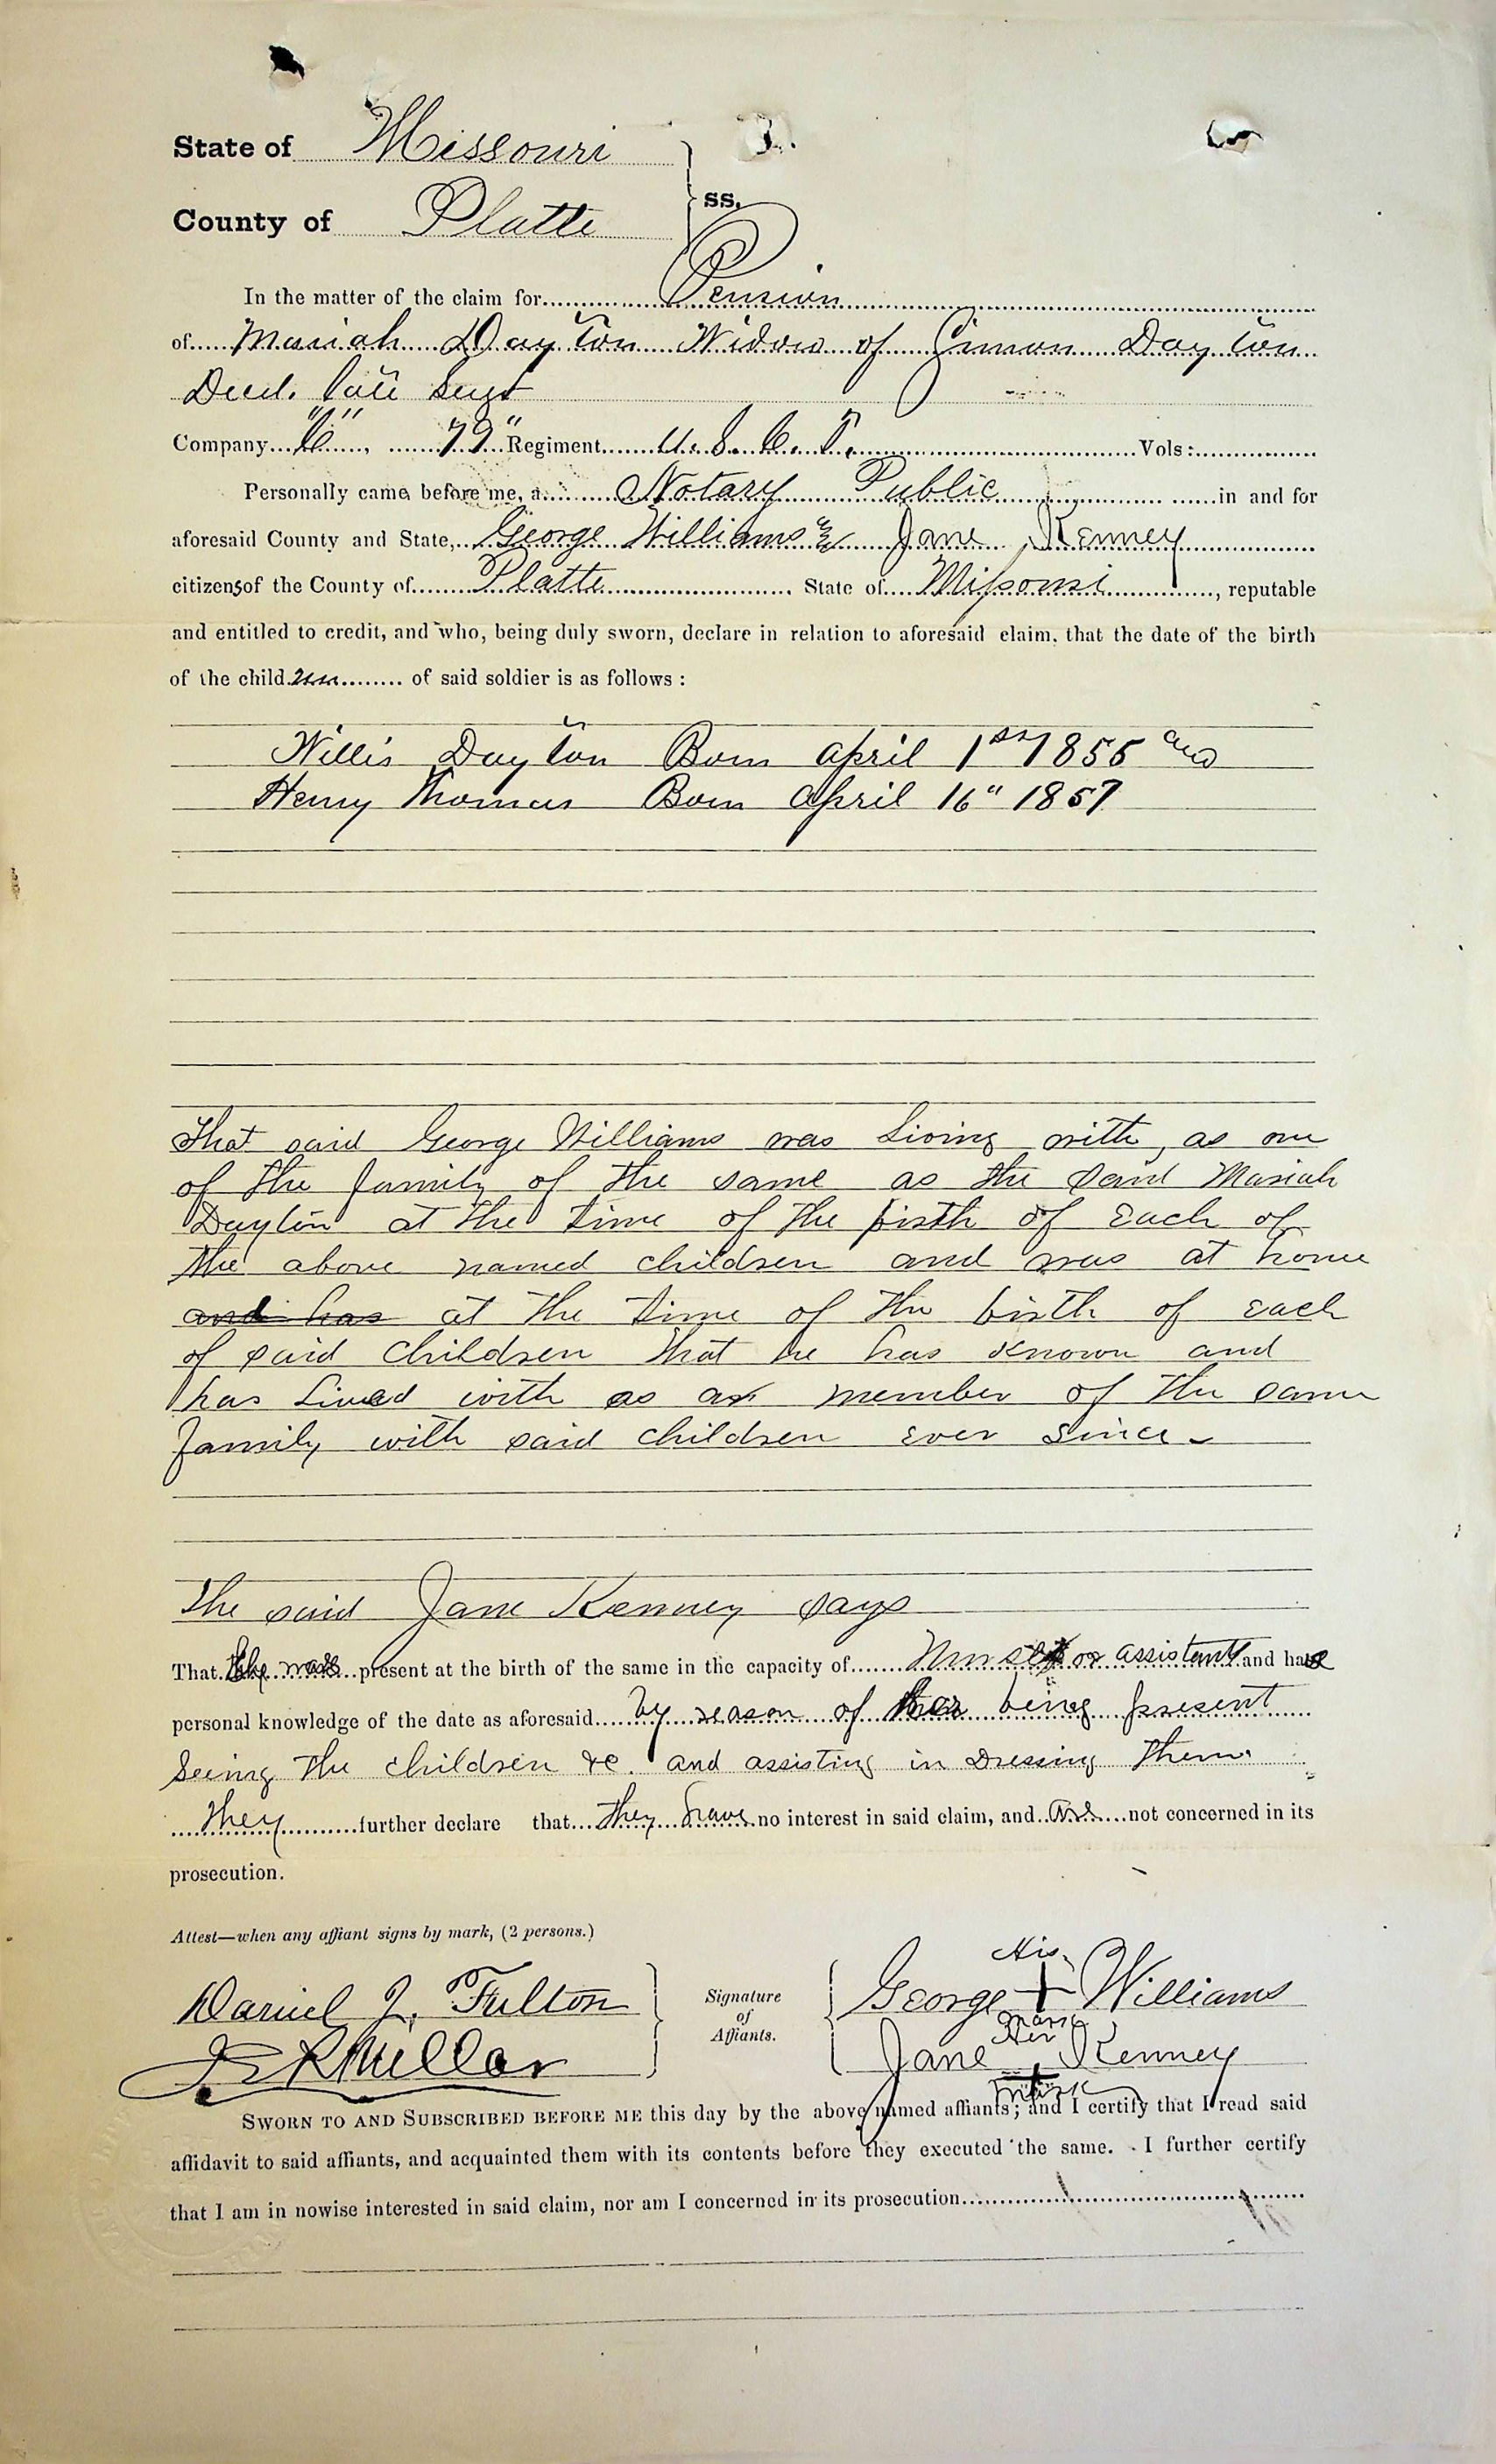 State of Missouri
County of Platte
ss.
In the matter of the claim for Pension
of Mariah Dayton Widow of Simon Dayton
Decd. late Sergt
Company "C", 79" Regiment U. S. C. T. Vols:
Personally came before me, a Notary Public in and for
aforesaid County and State, George Williams & Jane Kenney
citizens of the County of Platte State of Missouri, reputable
and entitled to credit, and who, being duly sworn, declare in relation to aforesaid claim, that the date of the birth
of the children of said soldier is as follows:
Willis Dayton Born April 1st 1855 and
Henry Thomas Born April 16" 1857
That said George Williams was Living with, as one
of the family of the same as the said Mariah
Dayton at the time of the birth of Each of
the above named children and was at home
and has at the time of the birth of each
of said children that he has known and
has Lived with as a member of the same
family with said children ever since
The said Jane Kenney says
That she was present at the birth of the same in the capacity of Nurse or assistant and has
personal knowledge of the date as aforesaid by reason of her being present
Seeing the children &c. and assisting in Dressing them.
They further declare that they have no interest in said claim, and are not concerned in its
prosecution.
Attest—when any affiant signs by mark, (2 persons.)
Daniel J. Fulton
Miller
Signature
of
Affiants.
His
George + Williams
mark
Her
Jane + Kenney
mark
SWORN TO AND SUBSCRIBED BEFORE ME this day by the above named affiants; and I certify that I read said
affidavit to said affiants, and acquainted them with its contents before they executed the same. I further certify
that I am in nowise interested in said claim, nor am I concerned in its prosecution